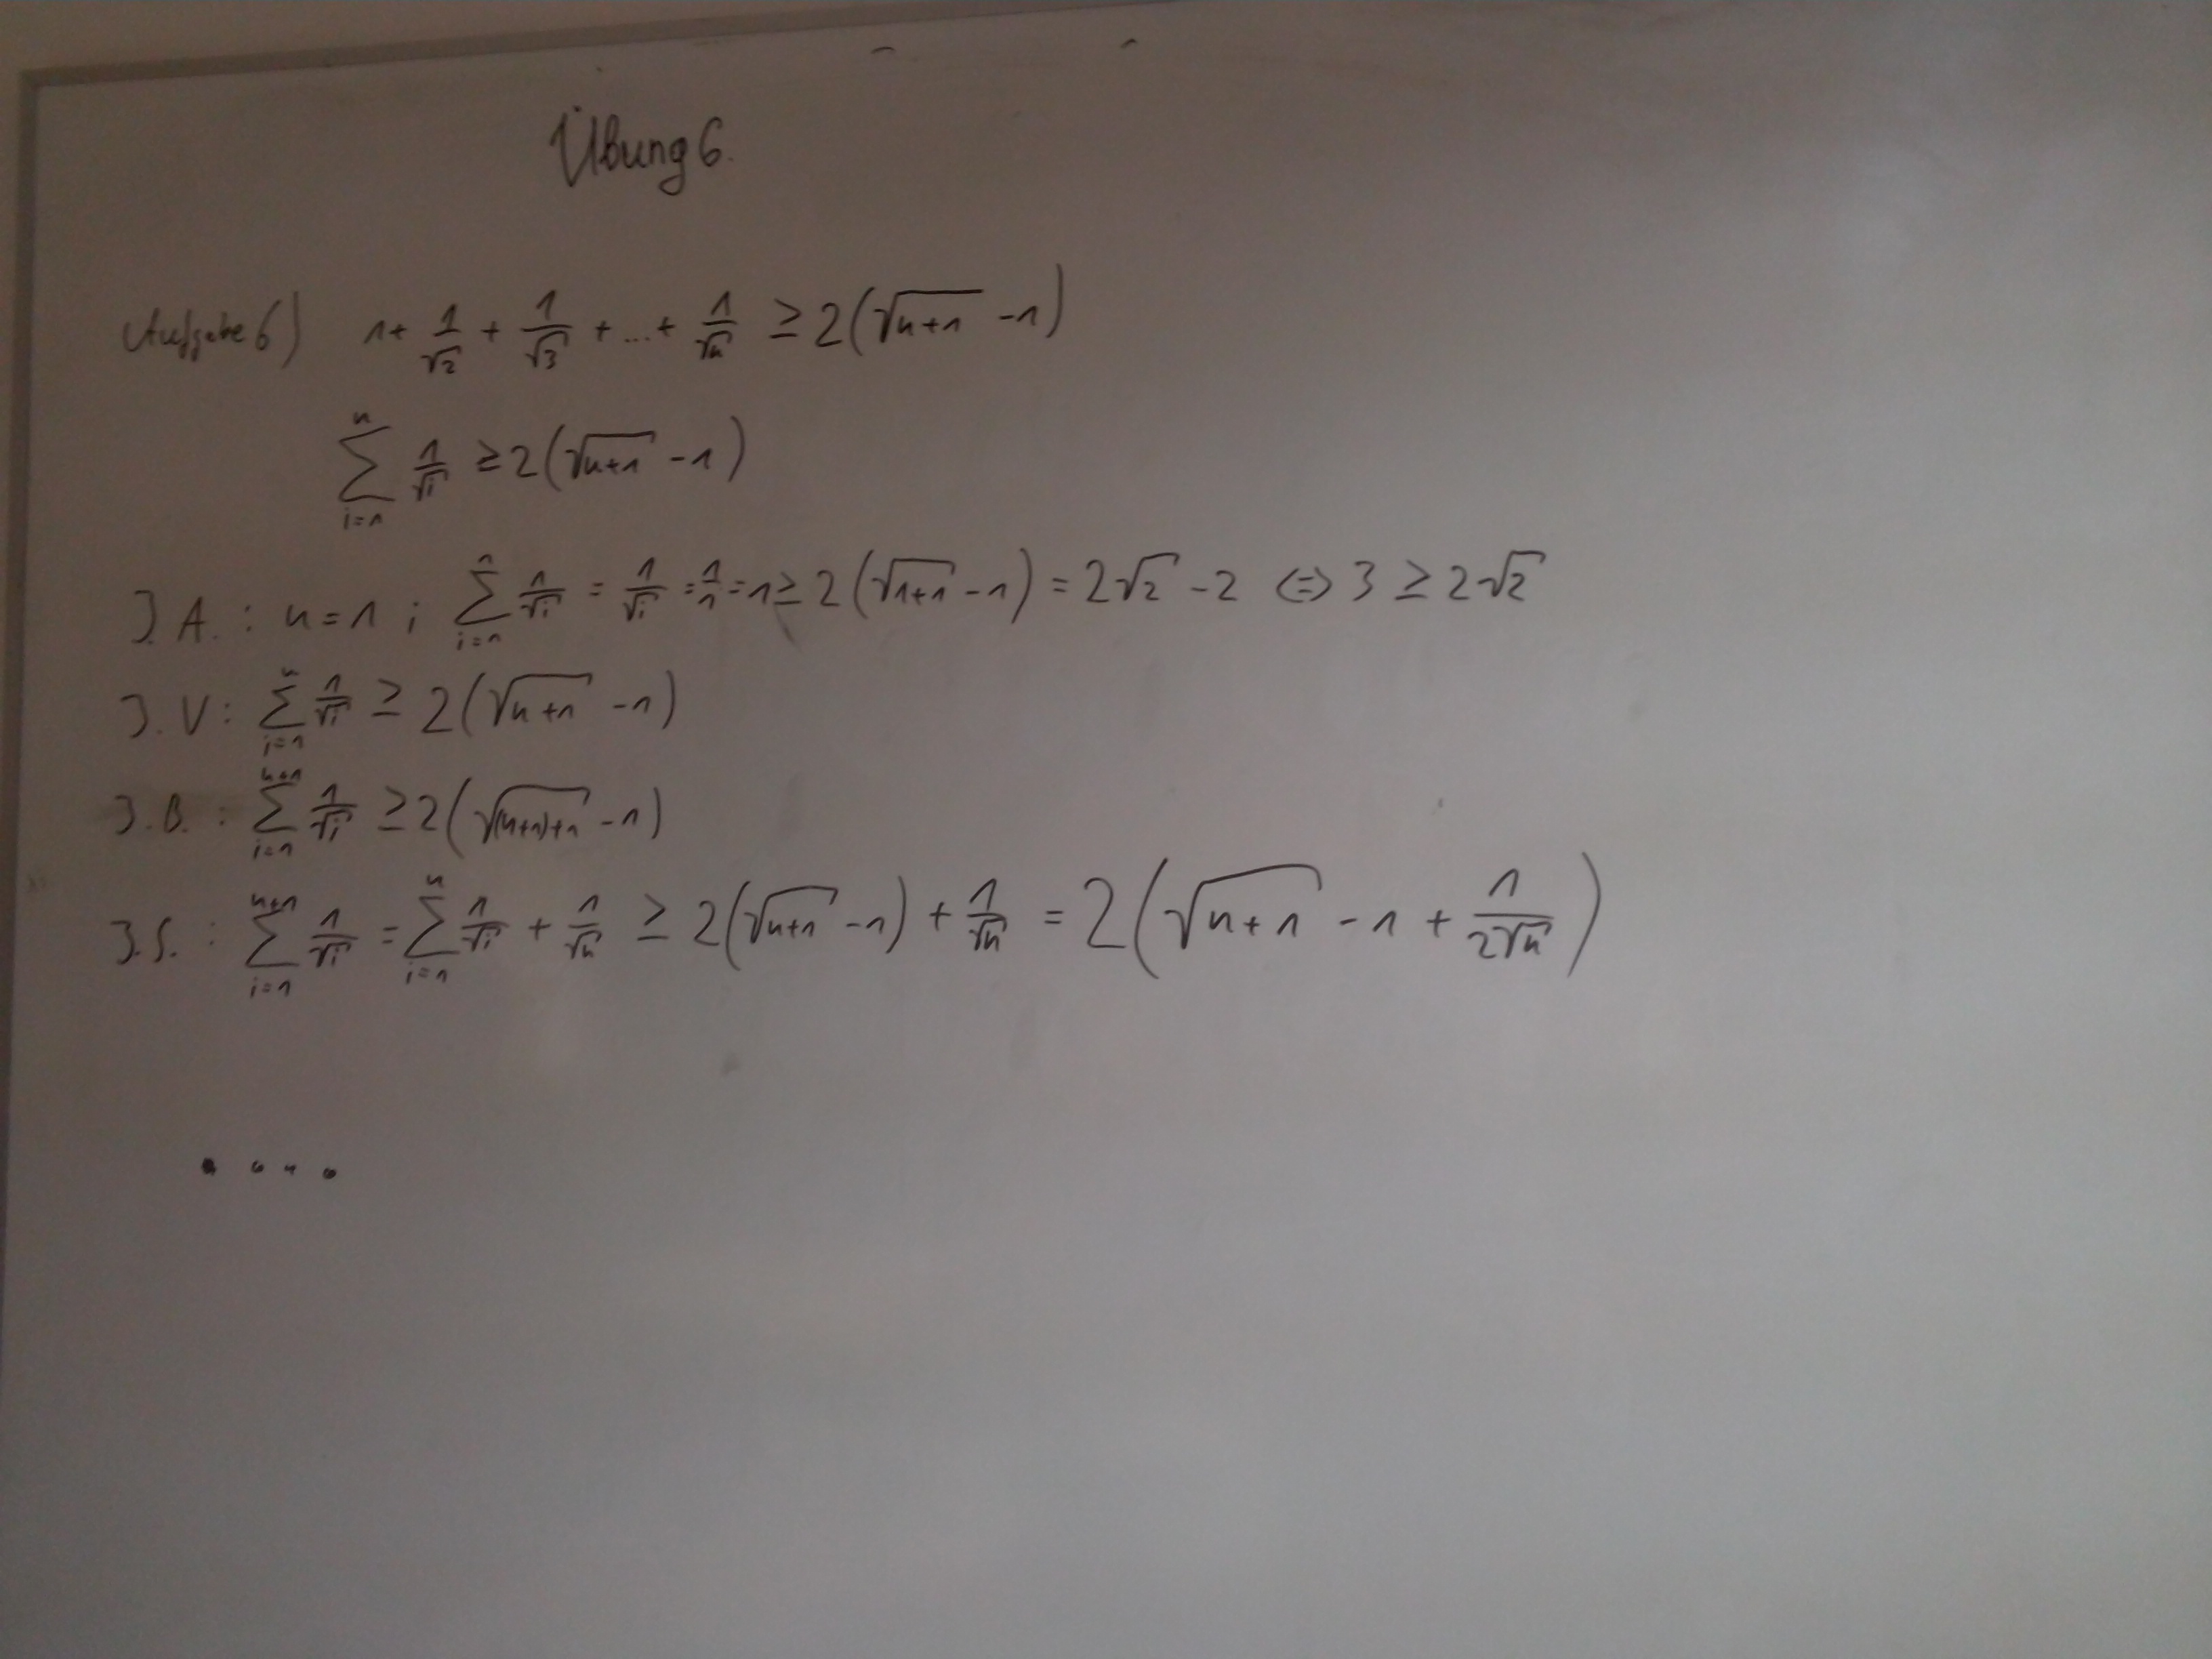 Übung 6.
Aufgabe 6) 1 + 1/√2 + 1/√3 + ... + 1/√n ≥ 2(√(n+1) - 1)
∑_{i=1}^{n} 1/√i ≥ 2(√(n+1) - 1)
I. A. : n = 1 ; ∑_{i=1}^{1} 1/√i = 1/√i = 1/1 = 1 ≥ 2(√(1+1) - 1) = 2√2 - 2 ⇔ 3 ≥ 2√2
I. V : ∑_{i=1}^{n} 1/√i ≥ 2(√(n+1) - 1)
I. B. : ∑_{i=1}^{n+1} 1/√i ≥ 2(√((n+1)+1) - 1)
I. S. : ∑_{i=1}^{n+1} 1/√i = ∑_{i=1}^{n} 1/√i + 1/√n ≥ 2(√(n+1) - 1) + 1/√n = 2(√(n+1) - 1 + 1/(2√n))
....